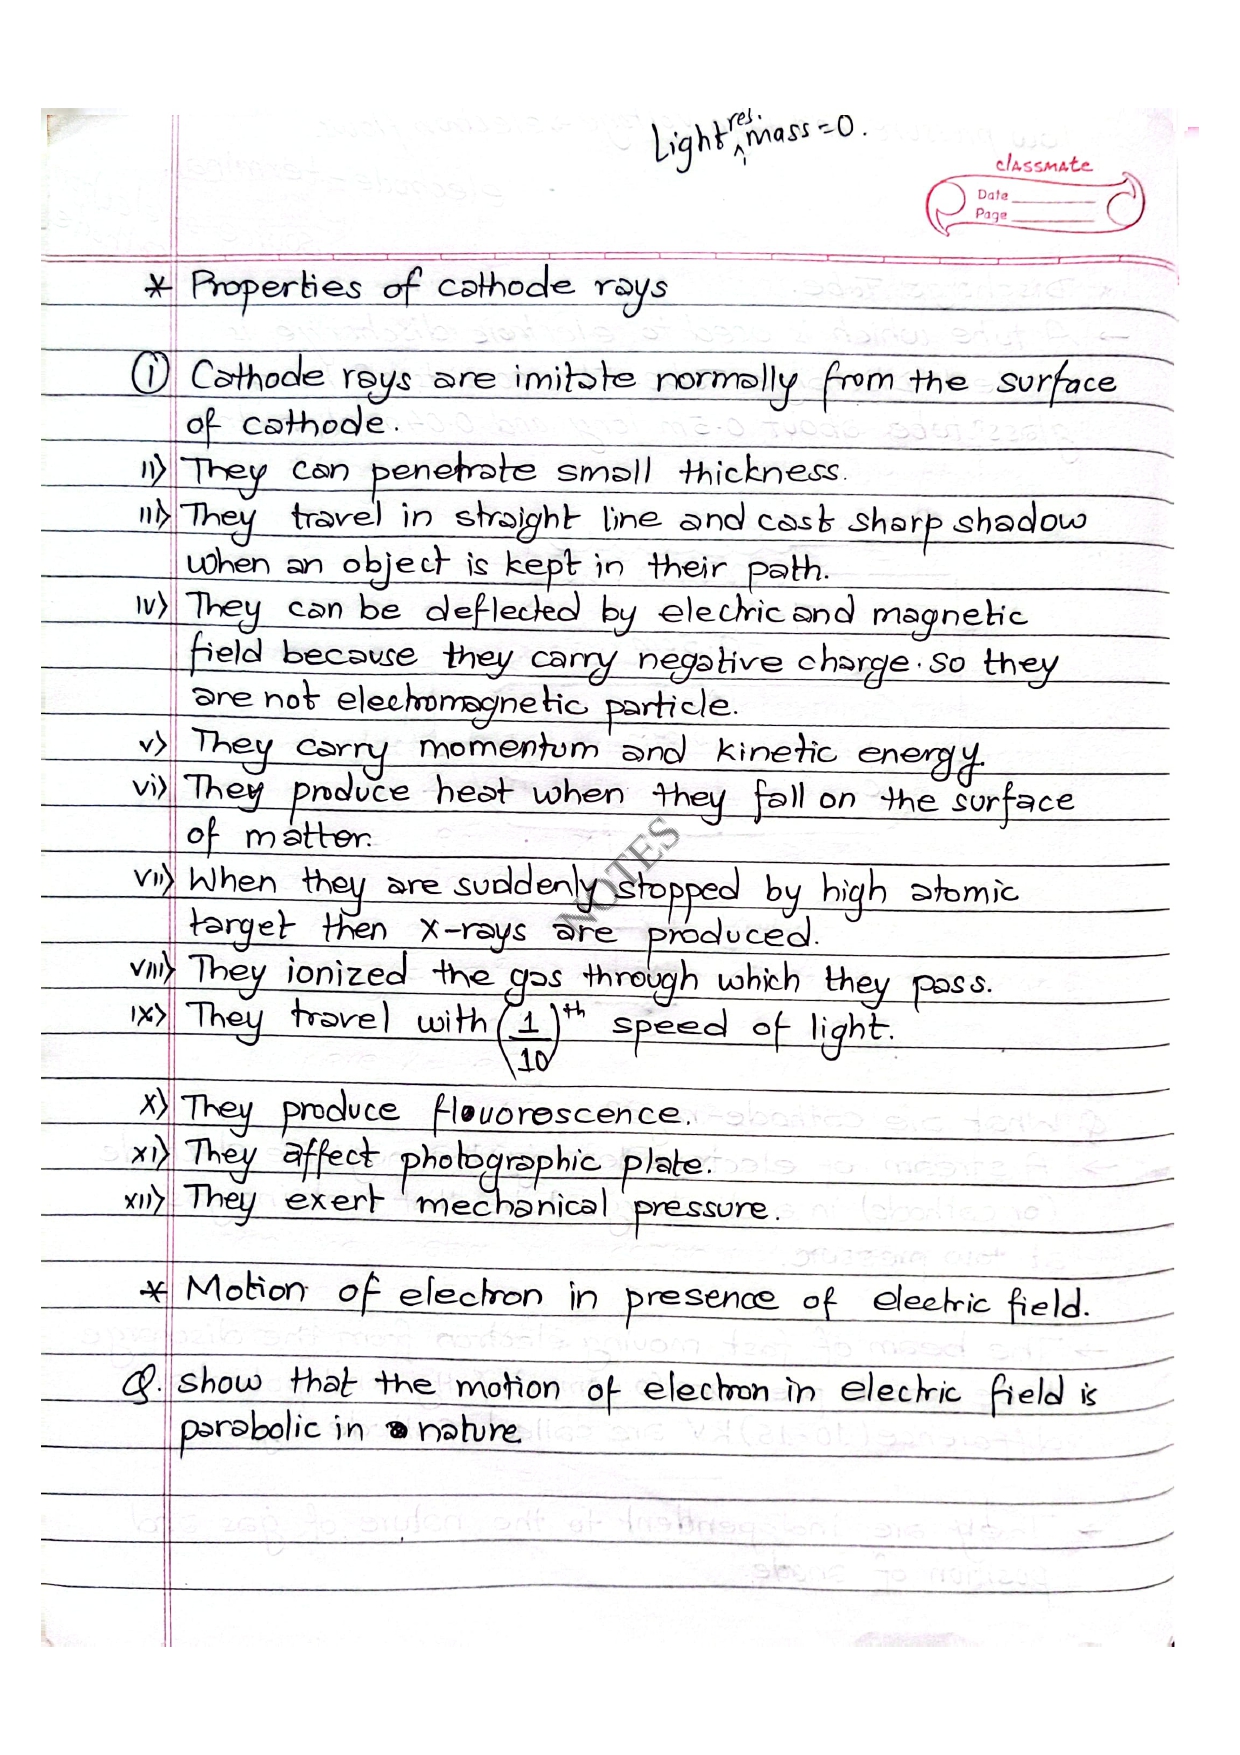 Light res. mass = 0.
classmate
Date
Page
* Properties of cathode rays
i) Cathode rays are imitate normally from the surface
of cathode.
ii) They can penetrate small thickness.
iii) They travel in straight line and cast sharp shadow
when an object is kept in their path.
iv) They can be deflected by electric and magnetic
field because they carry negative charge. so they
are not electromagnetic particle.
v) They carry momentum and kinetic energy.
vi) They produce heat when they fall on the surface
of matter.
vii) When they are suddenly stopped by high atomic
target then x-rays are produced.
viii) They ionized the gas through which they pass.
ix) They travel with (1/10)th speed of light.
x) They produce flouorescence.
xi) They affect photographic plate.
xii) They exert mechanical pressure.
* Motion of electron in presence of electric field.
Q. show that the motion of electron in electric field is
parabolic in nature
NOTES